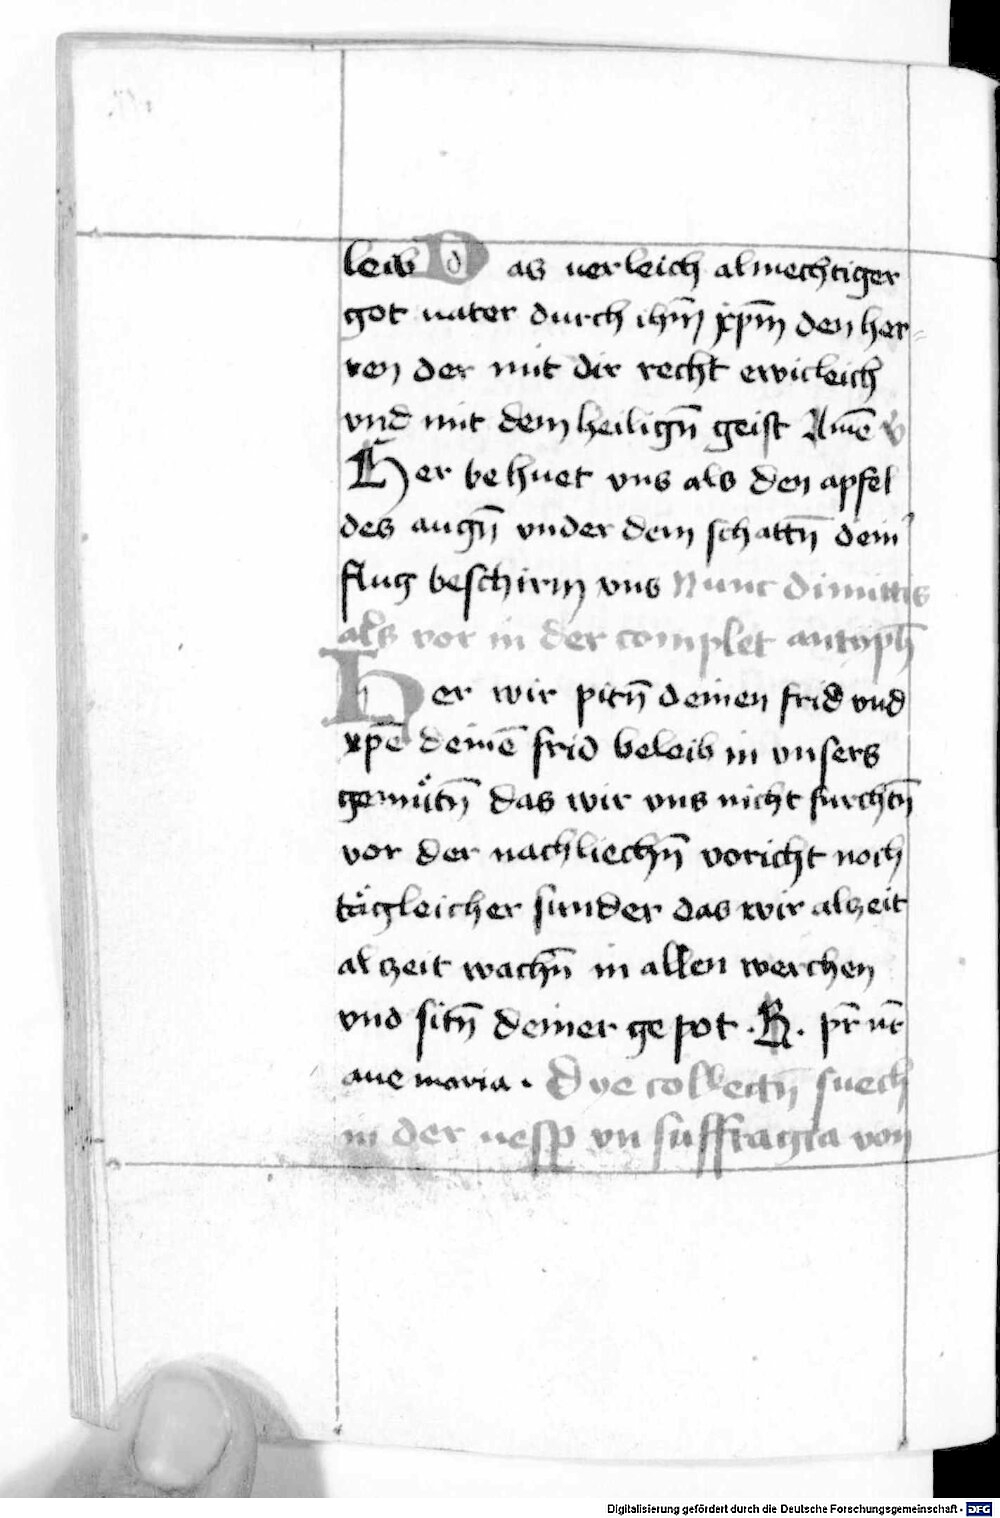 leib Das verleich almechtiger
got vater durch ihm̄ xp̄m den her-
ren der mit dir recht ewicleich
vnd mit dem heilign̄ geist Amē v
Her behuet vns als den apfel
des augn̄ vnder dem schattn̄ dein̉
flug beschirm vns Nunc dimittis
als vor in der complet antyph̄
Her wir pitn̄ deinen frid vnd
xp̄e deinē frid beleib in vnsers
gemuͤtn̄ das wir vns nicht furchtn̄
vor der nachliechn̄ voricht noch
taͤgleicher sunder das wir alzeit
alzeit wachn̄ in allen werchen
vnd sitn̄ deiner gepot . R . pr̄ nr̄
aue maria . Dye collectn̄ suech
in der vesp vn suffragia von
Digitalisierung gefördert durch die Deutsche Forschungsgemeinschaft - DFG